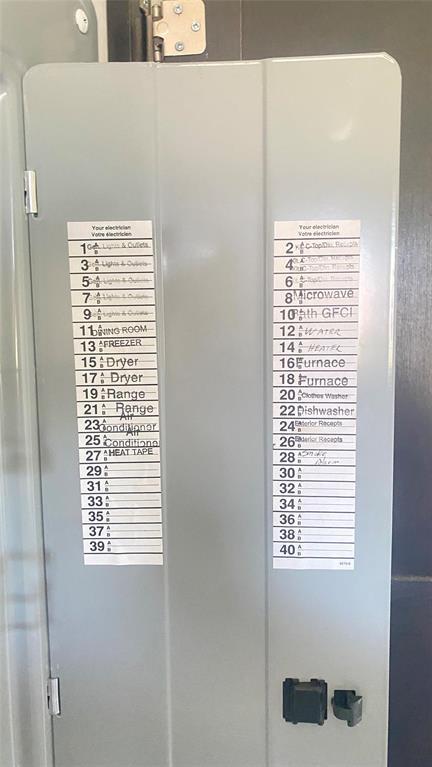 Your electrician
Votre électricien
1 A B Gen. Lights & Outlets
3 A B Gen. Lights & Outlets
5 A B Gen. Lights & Outlets
7 A B Gen. Lights & Outlets
9 A B Gen. Lights & Outlets
11 A B DINING ROOM
13 A B FREEZER
15 A B Dryer
17 A B Dryer
19 A B Range
21 A B Range
23 A B Air Conditioner
25 A B Air Conditioner
27 A B HEAT TAPE
29 A B
31 A B
33 A B
35 A B
37 A B
39 A B
Your electrician
Votre électricien
2 A B C-Top/Dis. Recepts
4 A B C-Top/Dis. Recepts
6 A B C-Top/Dis. Recepts
8 A B Microwave
10 A B Bath GFCI
12 A B WATER
14 A B HEATER
16 A B Furnace
18 A B Furnace
20 A B Clothes Washer
22 A B Dishwasher
24 A B Exterior Recepts
26 A B Exterior Recepts
28 A B Smoke Alarm
30 A B
32 A B
34 A B
36 A B
38 A B
40 A B